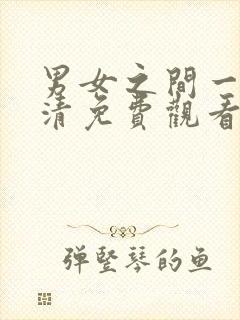 男女之間一
清免費觀看
弹竖琴的鱼